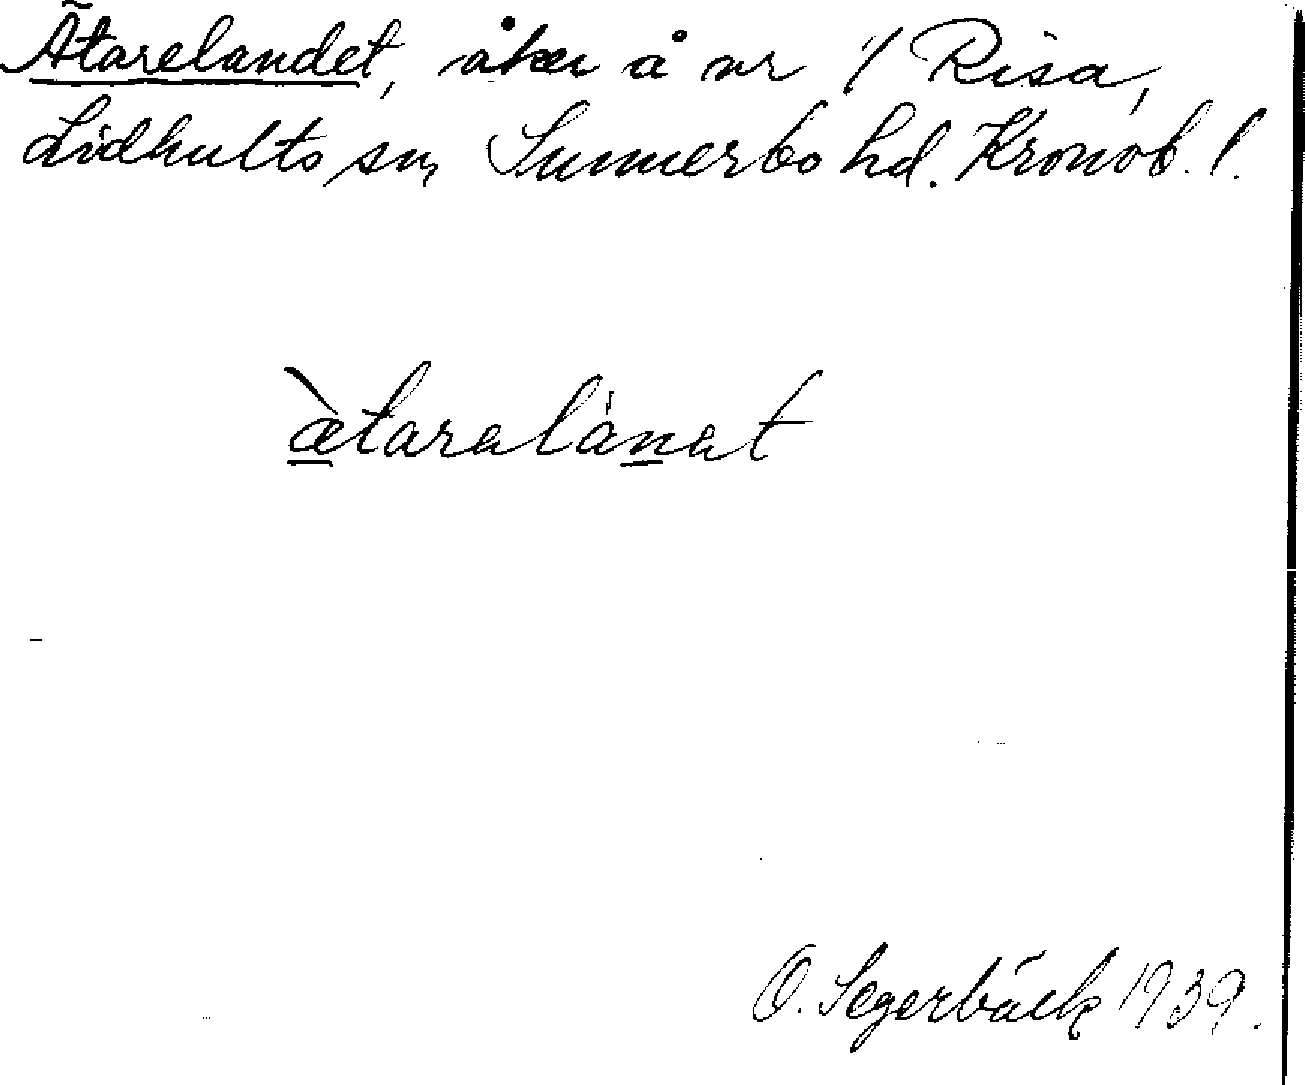 Ätarelandet, åker å nr 1/ Risa,
Lidhults sn, Sunnerbo hd. Kronob. l.
ætaralánat
O. Segerbäck 1939.